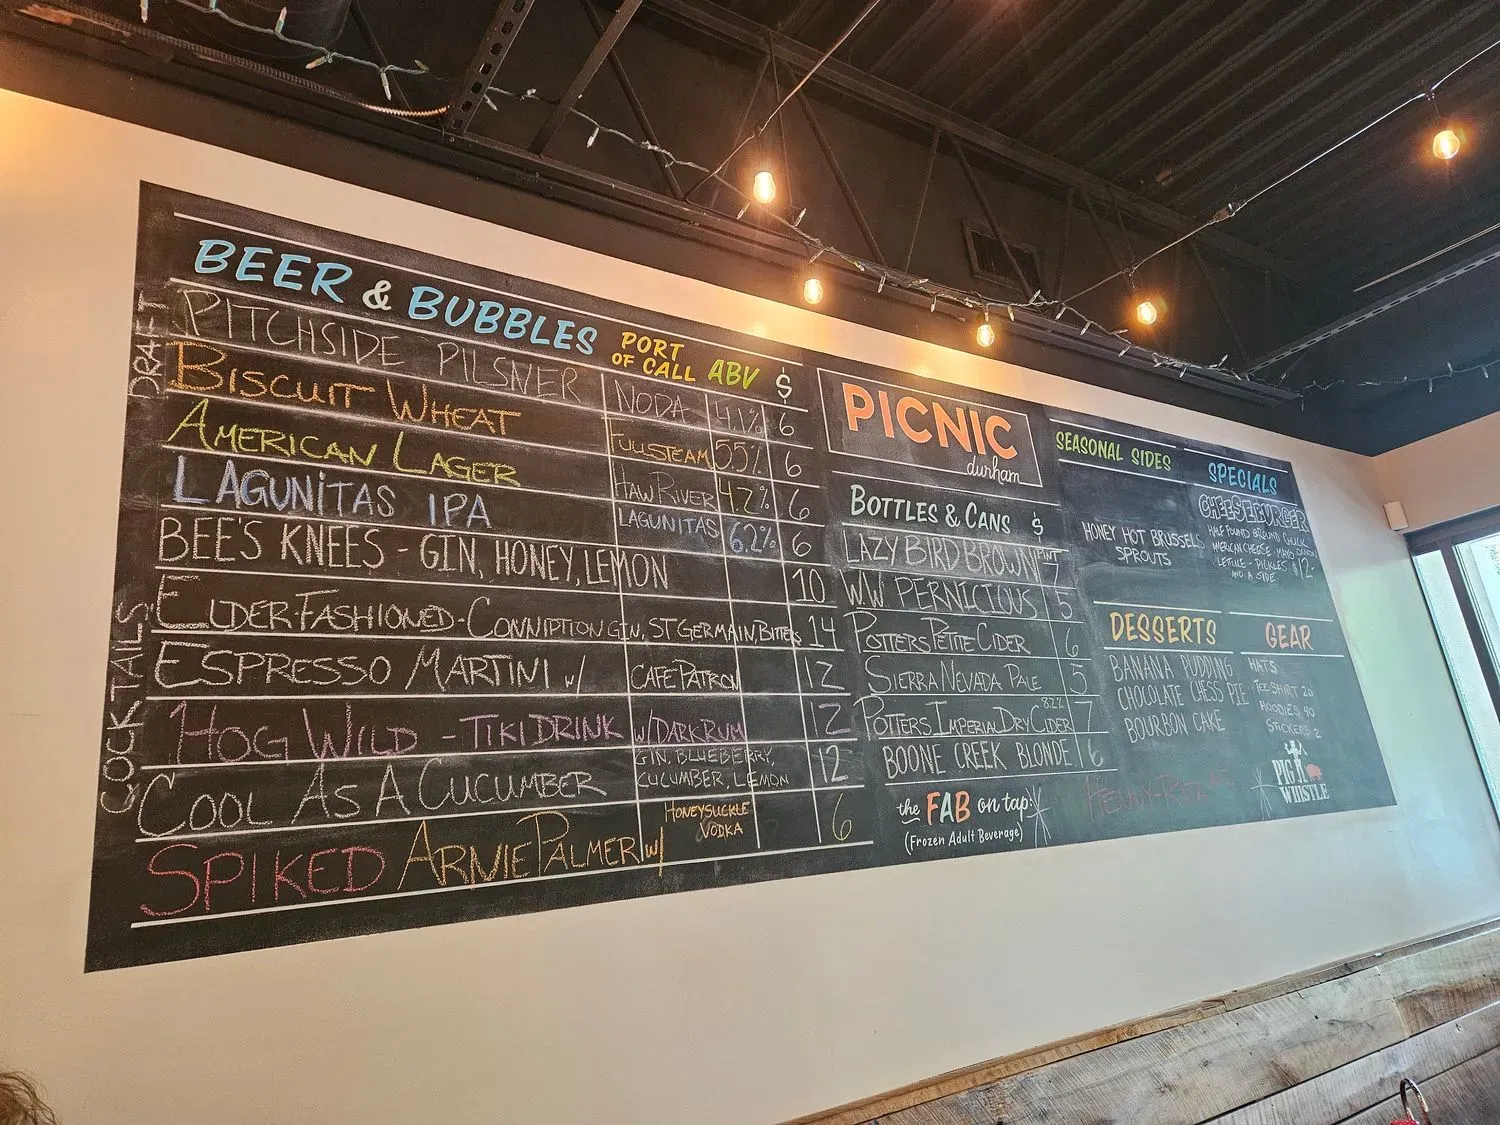 BEER & BUBBLES PORT OF CALL ABV $
DRAFT
PITCHSIDE PILSNER NODA 4.1% 6
BISCUIT WHEAT FULLSTEAM 5.5% 6
AMERICAN LAGER HAW RIVER 4.2% 6
LAGUNITAS IPA LAGUNITAS 6.2% 6
COCKTAILS
BEE'S KNEES - GIN, HONEY, LEMON 10
ELDER FASHIONED - CONNIPTION GIN, ST GERMAIN, BITTERS 14
ESPRESSO MARTINI w/ CAFE PATRON 12
HOG WILD - TIKI DRINK W/DARK RUM 12
COOL AS A CUCUMBER GIN, BLUEBERRY, CUCUMBER, LEMON 12
SPIKED ARNIE PALMER w/ HONEYSUCKLE VODKA 6
PICNIC
durham
BOTTLES & CANS $
LAZY BIRD BROWN PINT 7
WW PERNICIOUS 5
POTTERS PETITE CIDER 6
SIERRA NEVADA PALE 5
POTTERS IMPERIAL DRY CIDER 8.2% 7
BOONE CREEK BLONDE 6
the FAB on tap:
(Frozen Adult Beverage)
HENNY-RITA
SEASONAL SIDES
HONEY HOT BRUSSELS
SPROUTS
SPECIALS
CHEESEBURGER
HALF POUND GROUND CHUCK
AMERICAN CHEESE - MAYO ONION
LETTUCE - PICKLES $12-
AND A SIDE
DESSERTS
BANANA PUDDING
CHOCOLATE CHESS PIE
BOURBON CAKE
GEAR
HATS
TEE-SHIRT 20
HOODIES 40
STICKERS 2
PIG
WHISTLE